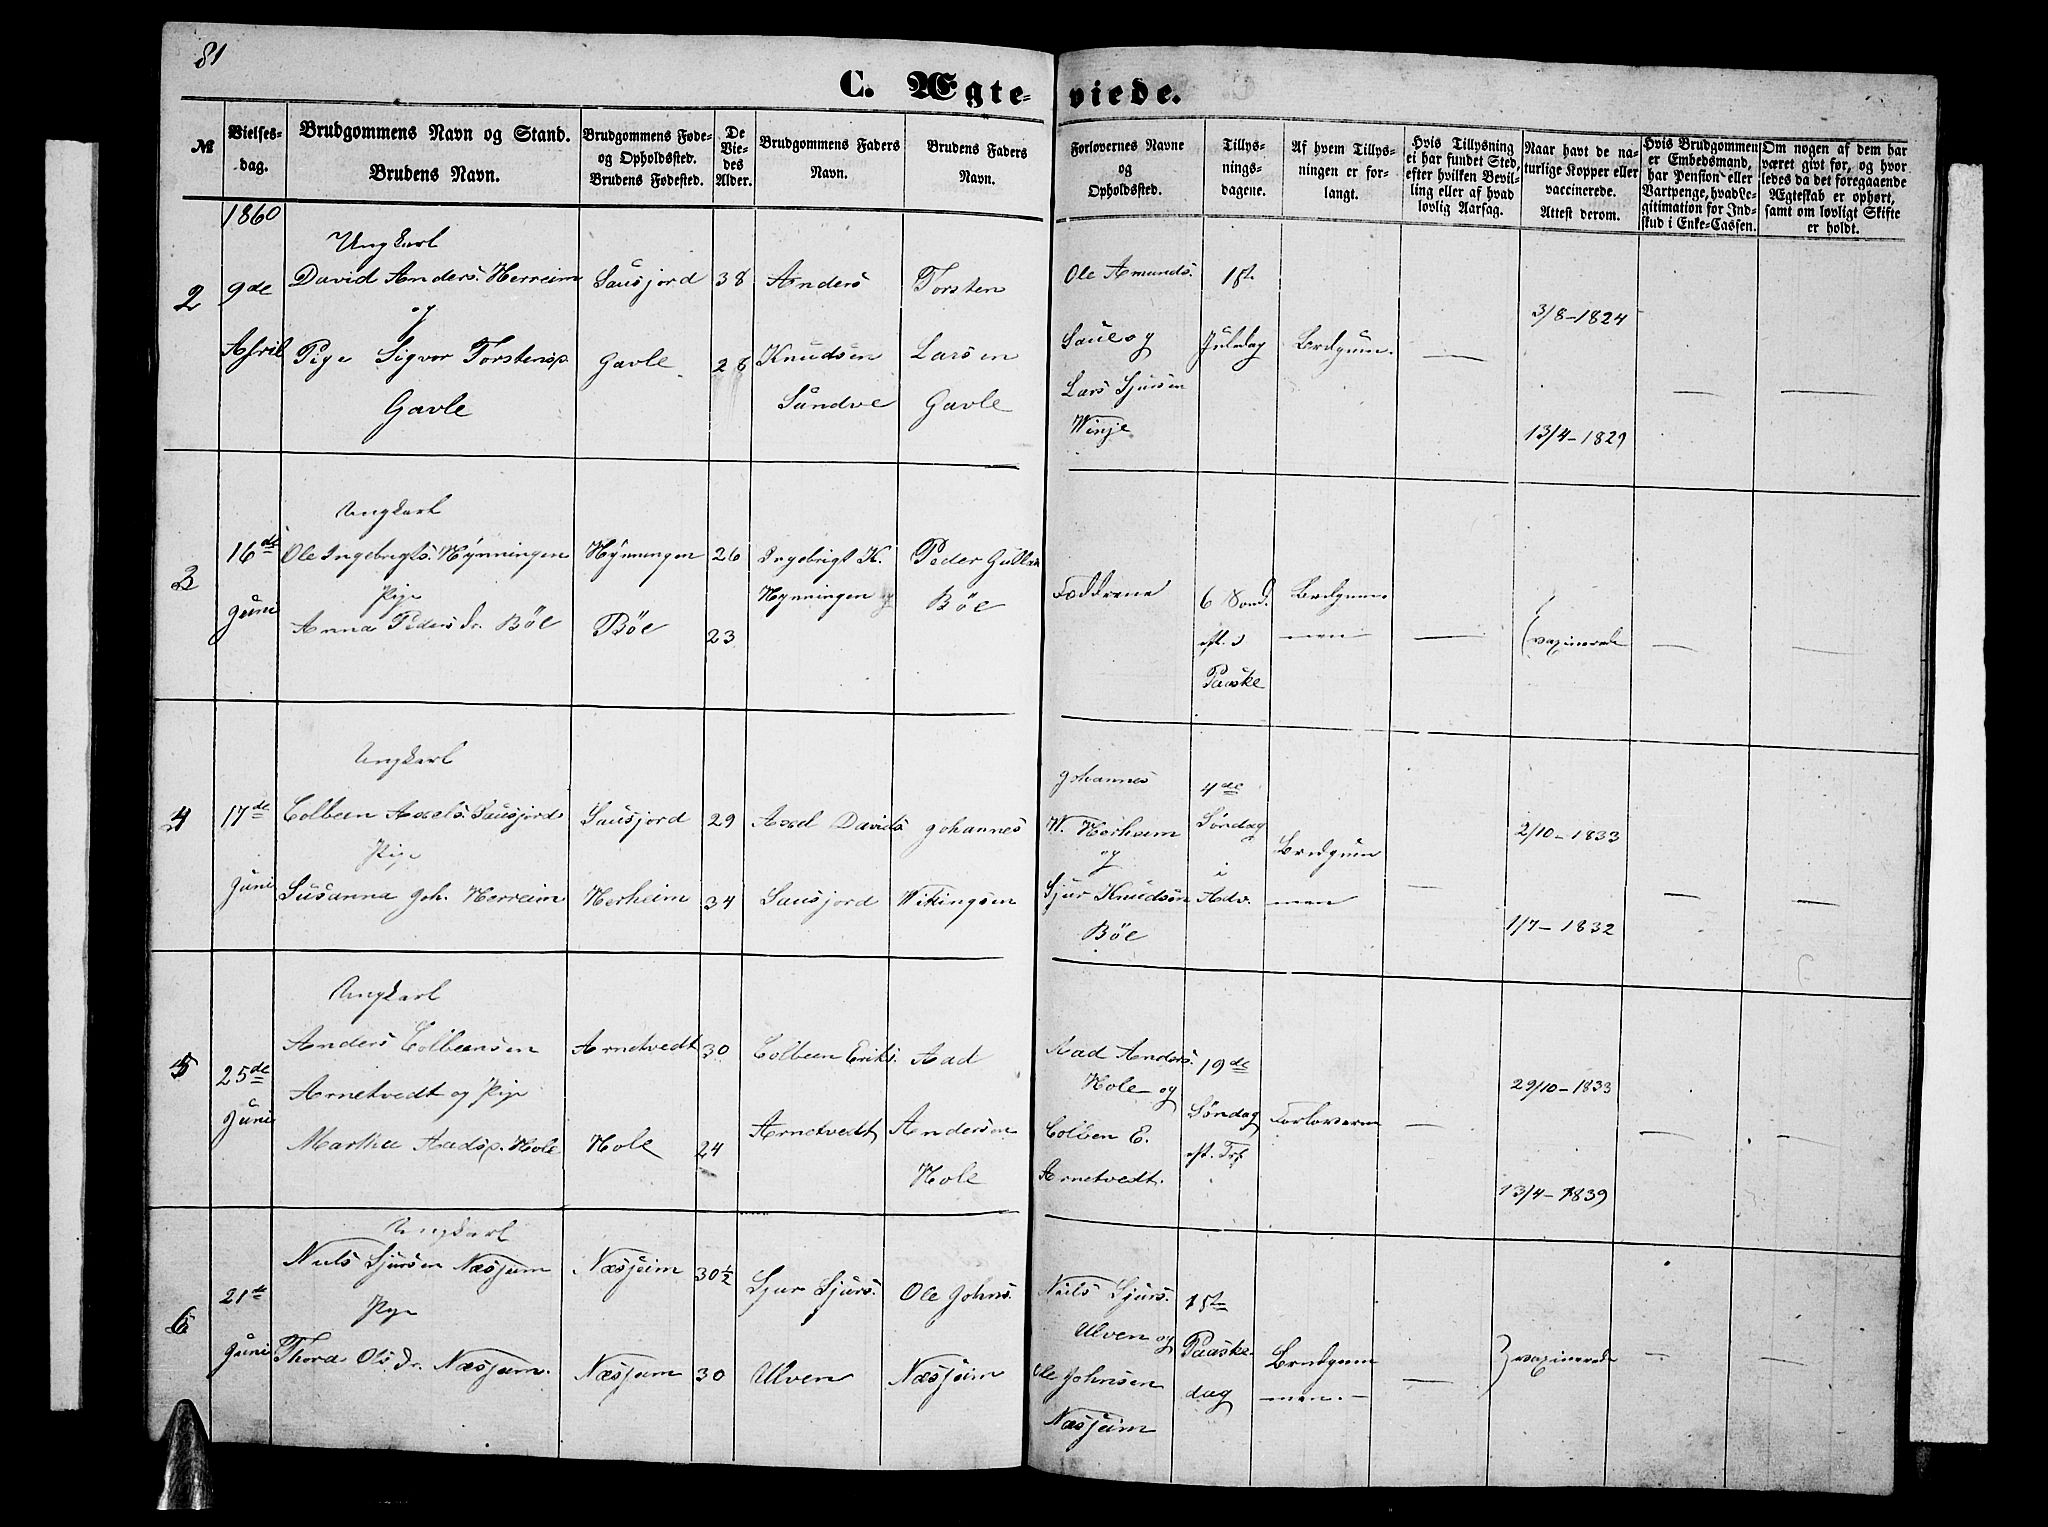 81
C. Ægteviede.
№
Vielses-
dag.
Brudgommens Navn og Stand.
Brudens Navn.
Brudgommens Føde-
og Opholdssted.
Brudens Fødested.
De
Vie-
des
Alder.
Brudgommens Faders
Navn.
Brudens Faders
Navn.
Forlovernes Navne
og
Opholdssted.
Tillys-
nings-
dagene.
Af hvem Tillys-
ningen er for-
langt.
Hvis Tillysning
ei har fundet Sted,
efter hvilken Bevil-
ling eller af hvad
lovlig Aarsag.
Naar havt de na-
turlige Kopper eller
vaccinerede.
Attest derom.
Hvis Brudgommen
er Embedsmand,
har Pension eller
Vartpenge, hvad Le-
gitimation for Ind-
skud i Enke-Cassen.
Om nogen af dem har
været givt før, og hvor
ledes da det foregaaende
Ægteskab er ophørt,
samt om lovligt Skifte
er holdt.
1860
2
9de
April
Ungkarl
David Anders. Herreim
og
Pige Sigvor Torstensp.
Gavle
Sausjord
Gavle
38
28
Anders
Knudsen
Sundve
Torsten
Larsen
Gavle
Ole Amunds.
Saue og
Lars Sjursen
Winje
1ste
Juledag
Brdgum.
—
3/8-1824
13/4-1829
—
—
3
16de
Juni
Ungkarl
Ole Ingebrigts. Hynningen
Pige
Anna Peders dr. Böe
Hynningen
Böe
26
23
Ingebrigt K.
Hynningen
Peder
Böe
Fæddrene
6 Sond.
eft.
Paaske
Brdgum-
men
—
vaxinerede
—
—
4
17de
Juni
Ungkarl
Colbeen Axels. Sausjord
Pige
Susanna Joh. Herreim
Sausjord
Herheim
29
34
Axel Davids.
Sausjord
Johannes
Wikingsen
Johannes
W. Herheim
og
Sjur Knudsen
Böe
4de
Søndag
i
Adv.
Brudgum
men
—
2/10-1833
1/7-1832
—
—
5
25de
Juni
Ungkarl
Anders Colbeensen
Arnetvedt og Pige
Martha Aadsp. Hole
Arnetvedt
Hole
30
24
Colbeen Eriks.
Arnetvedt
Aad
Andersen
Hole
Aad Anders.
Hole og
Colben E.
Arnetvedt.
19de
Søndag
eft. Trf
Forloverne
—
29/10-1833
13/4-1839
—
—
6
21de
Juni
Ungkarl
Niels Sjursen Næsjeim
Pige
Thora Ols dr. Næsjeim.
Næsjeim
Næsjeim
30½
30
Sjur Sjurs.
Ulven
Ole Johns.
Næsjeim
Niels Sjurs.
Ulven og
Ole Johnsen
Næsjeim
1ste
Paaske-
dag
Brudgum
men.
—
vaxinerede
—
—